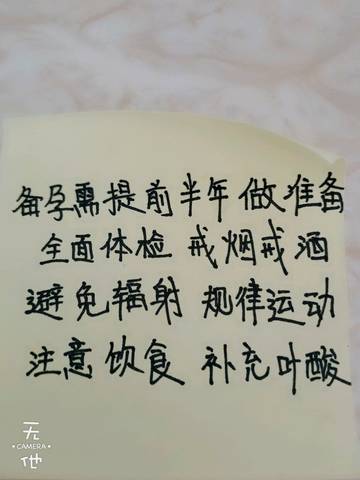 备孕需提前半年做准备
全面体检 戒烟戒酒
避免辐射 规律运动
注意饮食 补充叶酸
无
CAMERA
他